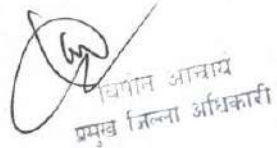 विपीन आचार्य
प्रमुख जिल्ला अधिकारी